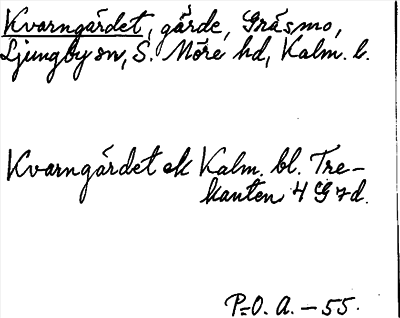 Kvarngärdet, gärde, Gräsmo,
Ljungby sn, S. Möre hd, Kalm. l.
Kvarngärdet ek Kalm. bl. Tre-
kanten 4 G 7 d.
P=O. A. - 55.